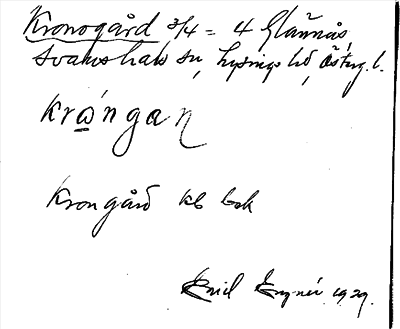 Kronogård 3/4 = 4 Glännås,
Svanshals sn, Lysings hd, Österg. l.
krón̥gan
Krongård kb bok
Emil Engnér 1929.